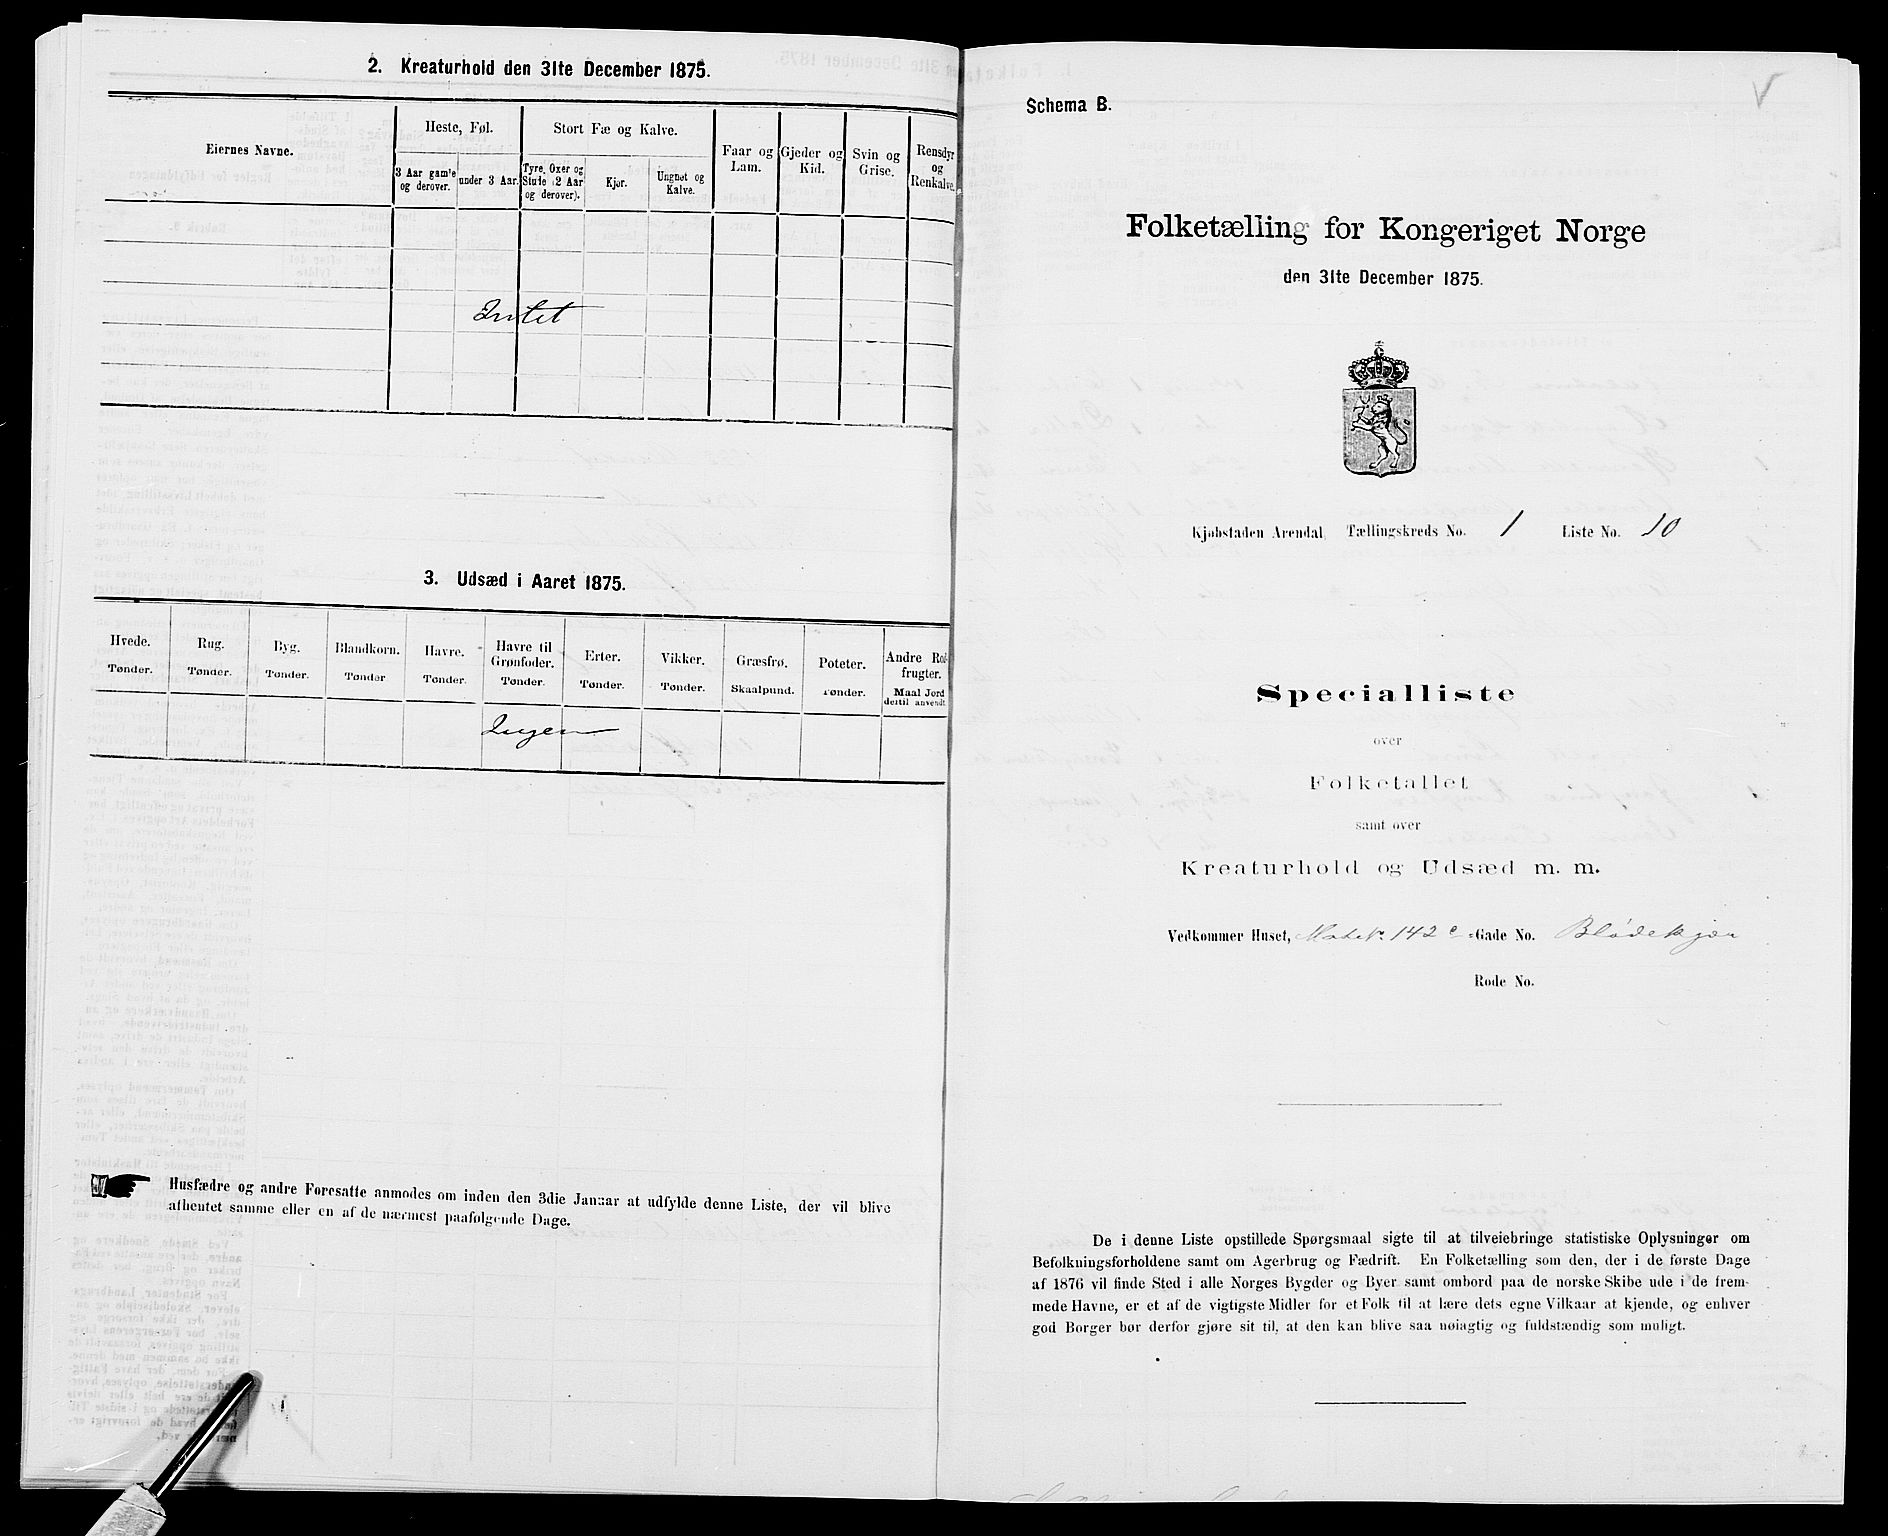 2. Kreaturhold den 31te December 1875.
Eiernes Navne.
Heste, Føl.
Stort Fæ og Kalve.
Faar og Lam.
Gjeder og Kid.
Svin og Grise.
Rensdyr og Renkalve.
3 Aar gam'e og derover.
under 3 Aar.
Tyre, Oxer og Stude (2 Aar og derover).
Kjør.
Ungnøt og Kalve.
Intet
3. Udsæd i Aaret 1875.
Hvede. Tønder.
Rug. Tønder.
Byg. Tønder.
Blandkorn. Tønder
Havre. Tønder.
Havre til Grønfoder. Tønder.
Erter. Tønder.
Vikker. Tønder.
Græsfrø. Skaalpund.
Poteter. Tønder.
Andre Rodfrugter. Maal Jord dertil anvendt.
Ingen
Husfædre og andre Foresatte anmodes om inden den 3die Januar at udfylde denne Liste, der vil blive
afhentet samme eller en af de nærmest paafølgende Dage.
Schema B.
Folketælling for Kongeriget Norge
den 31te December 1875.
Kjøbstaden Arendal, Tællingskreds No. 1 Liste No. 10
Specialliste
over
Folketallet
samt over
Kreaturhold og Udsæd m. m.
Vedkommer Huset, 142 c Gade No. Blødekjær
Rode No.
De i denne Liste opstillede Spørgsmaal sigte til at tilveiebringe statistiske Oplysninger om
Befolkningsforholdene samt om Agerbrug og Fædrift. En Folketælling som den, der i de første Dage
af 1876 vil finde Sted i alle Norges Bygder og Byer samt ombord paa de norske Skibe ude i de frem-
mede Havne, er et af de vigtigste Midler for et Folk til at lære dets egne Vilkaar at kjende, og enhver
god Borger bør derfor gjøre sit til, at den kan blive saa nøiagtig og fuldstændig som muligt.